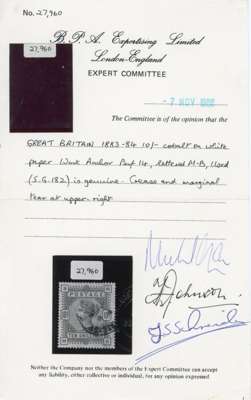 No. 27,960
27,960
B. P. A. Expertising Limited
London-England
EXPERT COMMITTEE
-7 NOV
The Committee is of the opinion that the
GREAT BRITAIN 1883-84 10/- cobalt on white
paper Wmk Anchor Perf 14, lettered M-B, Used
(S.G.182) is genuine. Crease and marginal
tear at upper right
27,960
Neither the Company nor the members of the Expert Committee can accept
any liability, either collective or individual, for any opinion expressed